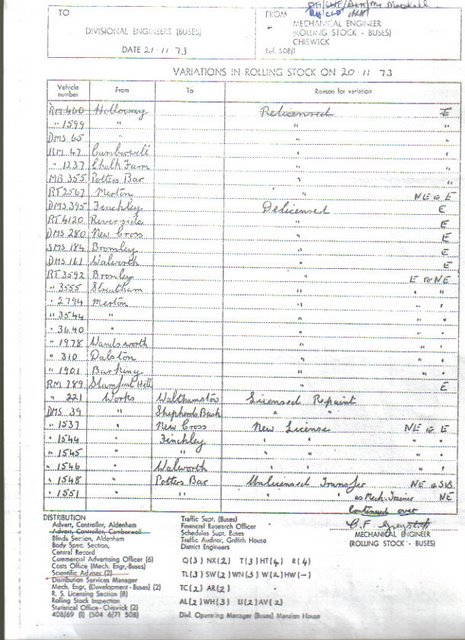 TO
DIVISIONAL ENGINEERS (BUSES)
DATE 21·11·73
FROM
MECHANICAL ENGINEER
(ROLLING STOCK - BUSES)
CHISWICK
Ref. 508/1
Mr Marshall
VARIATIONS IN ROLLING STOCK ON 20·11·73
Vehicle number From To Reason for variation
RM 460 Holloway Relicensed E
" 1599 " " "
DMS 65 " " "
RM 47 Camberwell " "
" 1237 Chalk Farm " "
MB 355 Potters Bar " "
RT 2567 Merton " NE to E
DMS 395 Finchley Delicensed E
RT 4120 Riverside " E
DMS 280 New Cross " E
SMS 184 Bromley " E
DMS 161 Walworth " E
RT 3592 Bromley " E to NE
" 3555 Streatham " " "
" 2794 Merton " " "
" 3544 " " " "
" 3640 " " " "
" 1978 Wandsworth " " "
" 310 Dalston " " "
" 1901 Barking " " "
RM 789 Stamford Hill " E
" 221 Works Walthamstow Licensed Repaint
DMS 39 " Shepherds Bush " "
" 1537 " New Cross New License NE to E
" 1544 " Finchley " " "
" 1545 " " " " "
" 1546 " Walworth " " "
" 1548 " Potters Bar Unlicensed Transfer NE to SUB
" 1551 " " as Mech. Trainer NE
Continued over
MECHANICAL ENGINEER
(ROLLING STOCK - BUSES)
DISTRIBUTION
Advert, Controller, Aldenham
Advert, Controller, Camberwell
Blinds Section, Aldenham
Body Spec. Section,
Central Record
Commercial Advertising Officer (6)
Costs Office (Mech. Engr-Buses)
Scientific Adviser (2)
Distribution Services Manager
Mech. Engr, (Development - Buses) (2)
R. S. Licensing Section (8)
Rolling Stock Inspection
Statistical Office - Chiswick (2)
408/69 (I) (504 6/71 508)
Traffic Supt. (Buses)
Financial Research Officer
Schedules Supt. Buses
Traffic Auditor, Griffith House
District Engineers
Q(3) NX(2) T(3) HT(4) R(4)
TL(3) SW(2) WN(3) W(2) HW(-)
TC(2) AR(2)
AL(2) WH(3) U(2) AV(2)
Divl. Operating Manager (Buses) Mansion House